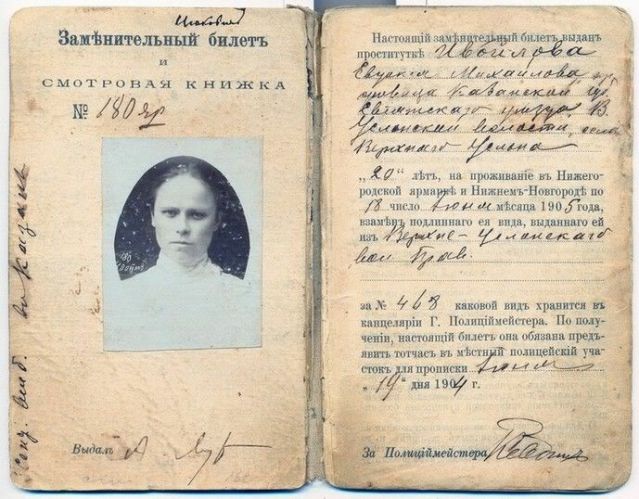 Замѣнительный билетъ
и
СМОТРОВАЯ КНИЖКА
№ 180 яр
Выдалъ
Настоящій замѣнительный билетъ выданъ
проституткѣ Ивойлова
Евгенія Михайлова, кр
Казанской губ
Свіяжскаго уѣзда, В.
Услонской волости, села
Верхняго Услона
„20" лѣтъ, на проживаніе въ Нижего-
родской ярмаркѣ и Нижнемъ-Новгородѣ по
18 число Іюня мѣсяца 1905 года,
взамѣнъ подлиннаго ея вида, выданнаго ей
изъ Верхне-Услонскаго
вол Прав.
за № 468 каковой видъ хранится въ
канцеляріи Г. Полиціймейстера. По полу-
ченіи, настоящій билетъ она обязана предъ-
явить тотчасъ въ мѣстный полицейскій уча-
стокъ для прописки Іюня
„19" дня 1904 г.
За Полиціймейстера